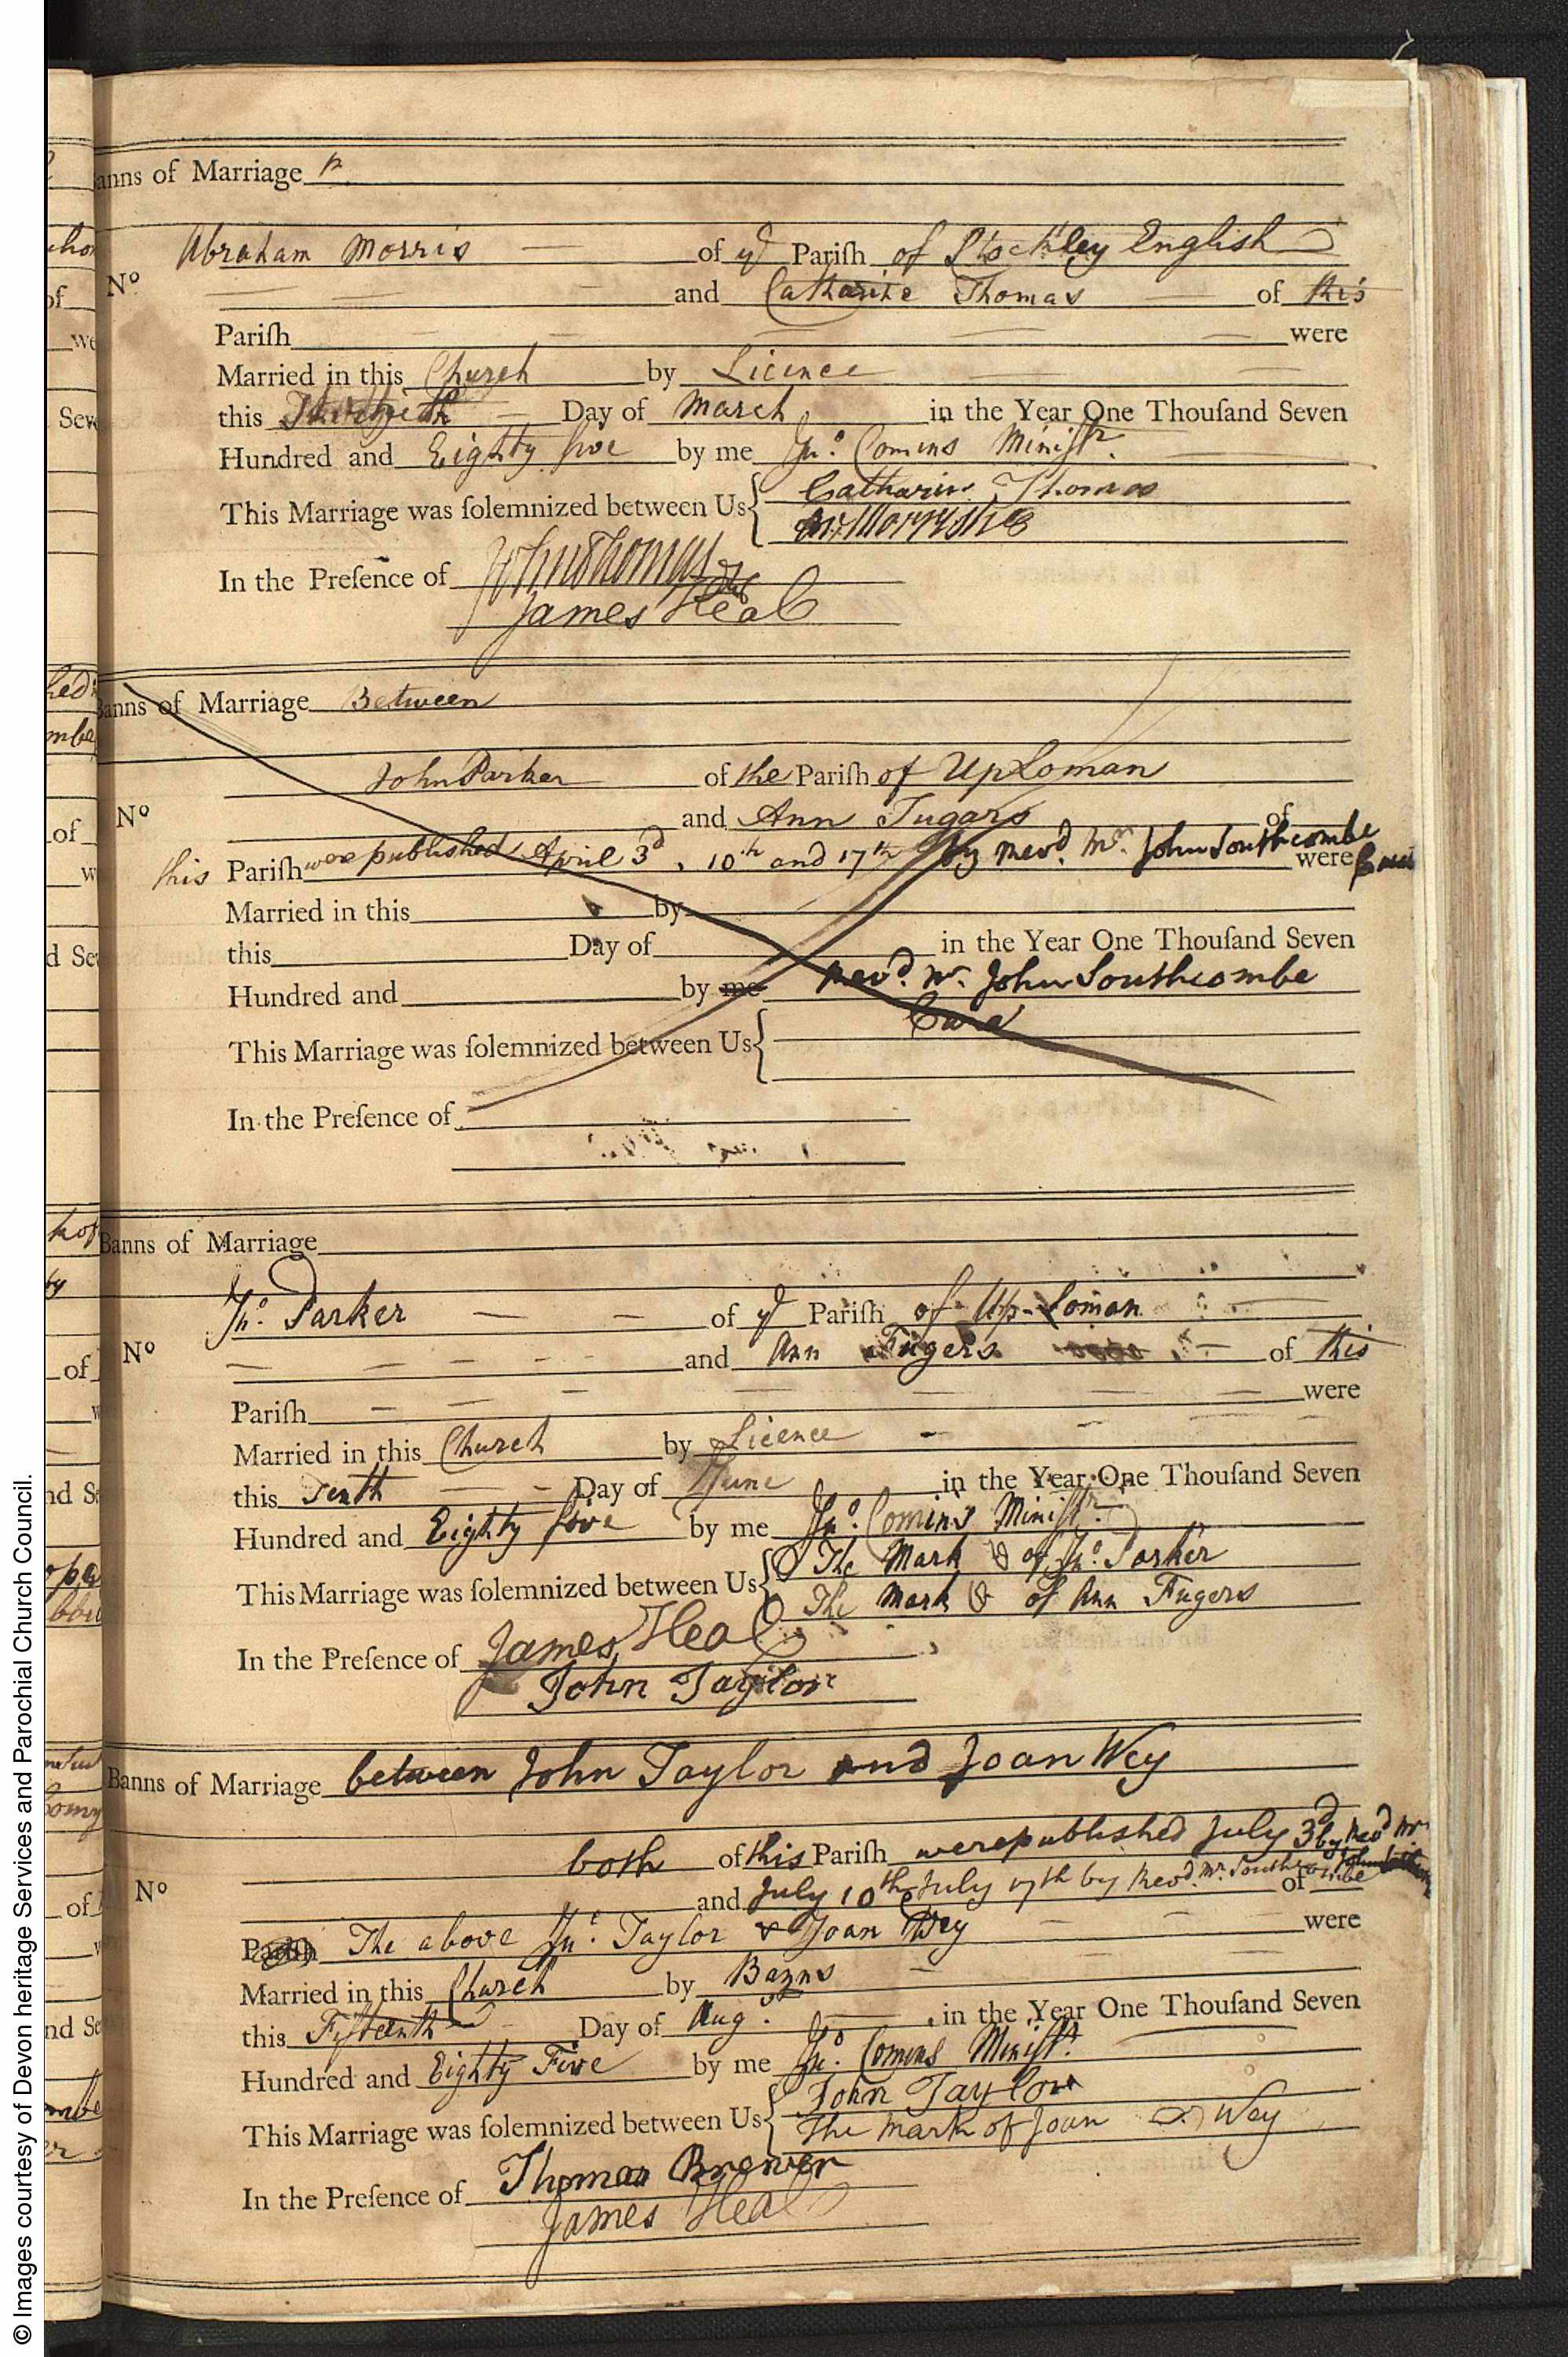 anns of Marriage
Abraham Morris of ye Pariſh of Stockley English
No
and Catharine Thomas of this
Pariſh were
Married in this Church by Licence
this Day of March in the Year One Thouſand Seven
Hundred and Eighty five by me Jno. Comins Ministr.
Catharin Thomas
This Marriage was ſolemnized between Us
In the Preſence of John Thomas
James Heal
Banns of Marriage Between
John Parker of the Pariſh of UpLoman
No
and Ann Fugars of
this Pariſh were published April 3d, 10th and 17th by Revd. Mr. John Southcombe
were
Married in this by
this Day of in the Year One Thouſand Seven
Hundred and by me Revd. Mr. John Southcombe
This Marriage was ſolemnized between Us
In the Preſence of
Banns of Marriage
Jno. Parker of ye Pariſh of Up-Loman
No
and Ann Fugers of this
Pariſh were
Married in this Church by Licence
this Tenth Day of June in the Year One Thouſand Seven
Hundred and Eighty five by me Jno. Comins Ministr.
The Mark of Jno. Parker
This Marriage was ſolemnized between Us
The Mark of Ann Fugers
In the Preſence of James Heal
John Taylor
Banns of Marriage between John Taylor and Joan Wey
both of this Pariſh were published July 3d by Revd Mr
No
and July 10th July 17th by Revd. Mr. Southcombe
of
Pariſh The above Jno. Taylor & Joan Wey were
Married in this Church by Banns
this Fifteenth Day of Aug. in the Year One Thouſand Seven
Hundred and Eighty Five by me Jno. Comins Ministr.
John Taylor
This Marriage was ſolemnized between Us
The mark of Joan Wey
In the Preſence of Thomas Brewer
James Heal
© Images courtesy of Devon heritage Services and Parochial Church Council.